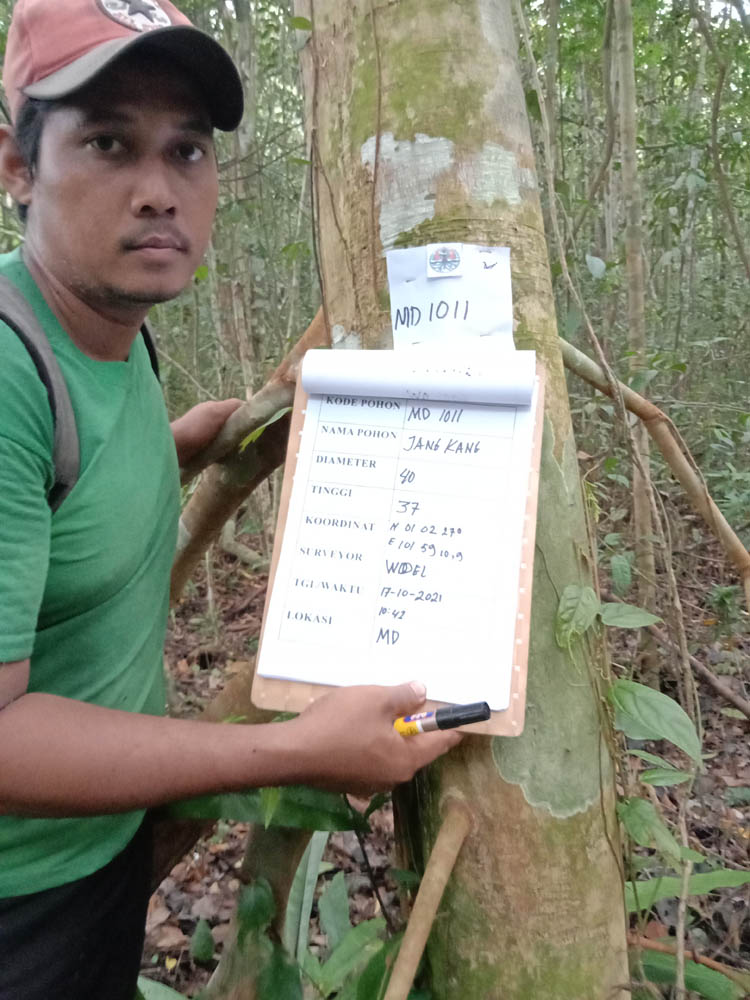 MD 1011
KODE POHON MD 1011
NAMA POHON JANG KANG
DIAMETER 40
TINGGI 37
KOORDINAT N 01 02 27°
E 101 59 10,9
SURVEYOR WIDEL
TGL/WAKTU 17-10-2021
10:42
LOKASI MD